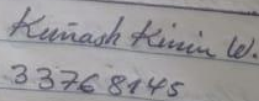 Kuñash Kinin W.
33768145